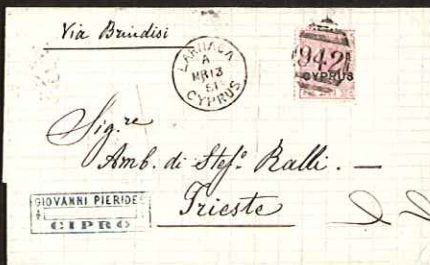 Via Brindisi
LARNACA
A
MR 13
81
CYPRUS
942
CYPRUS
Sig.re
Amb. di Stef.o Ralli. —
Trieste
GIOVANNI PIERIDES
CIPRO